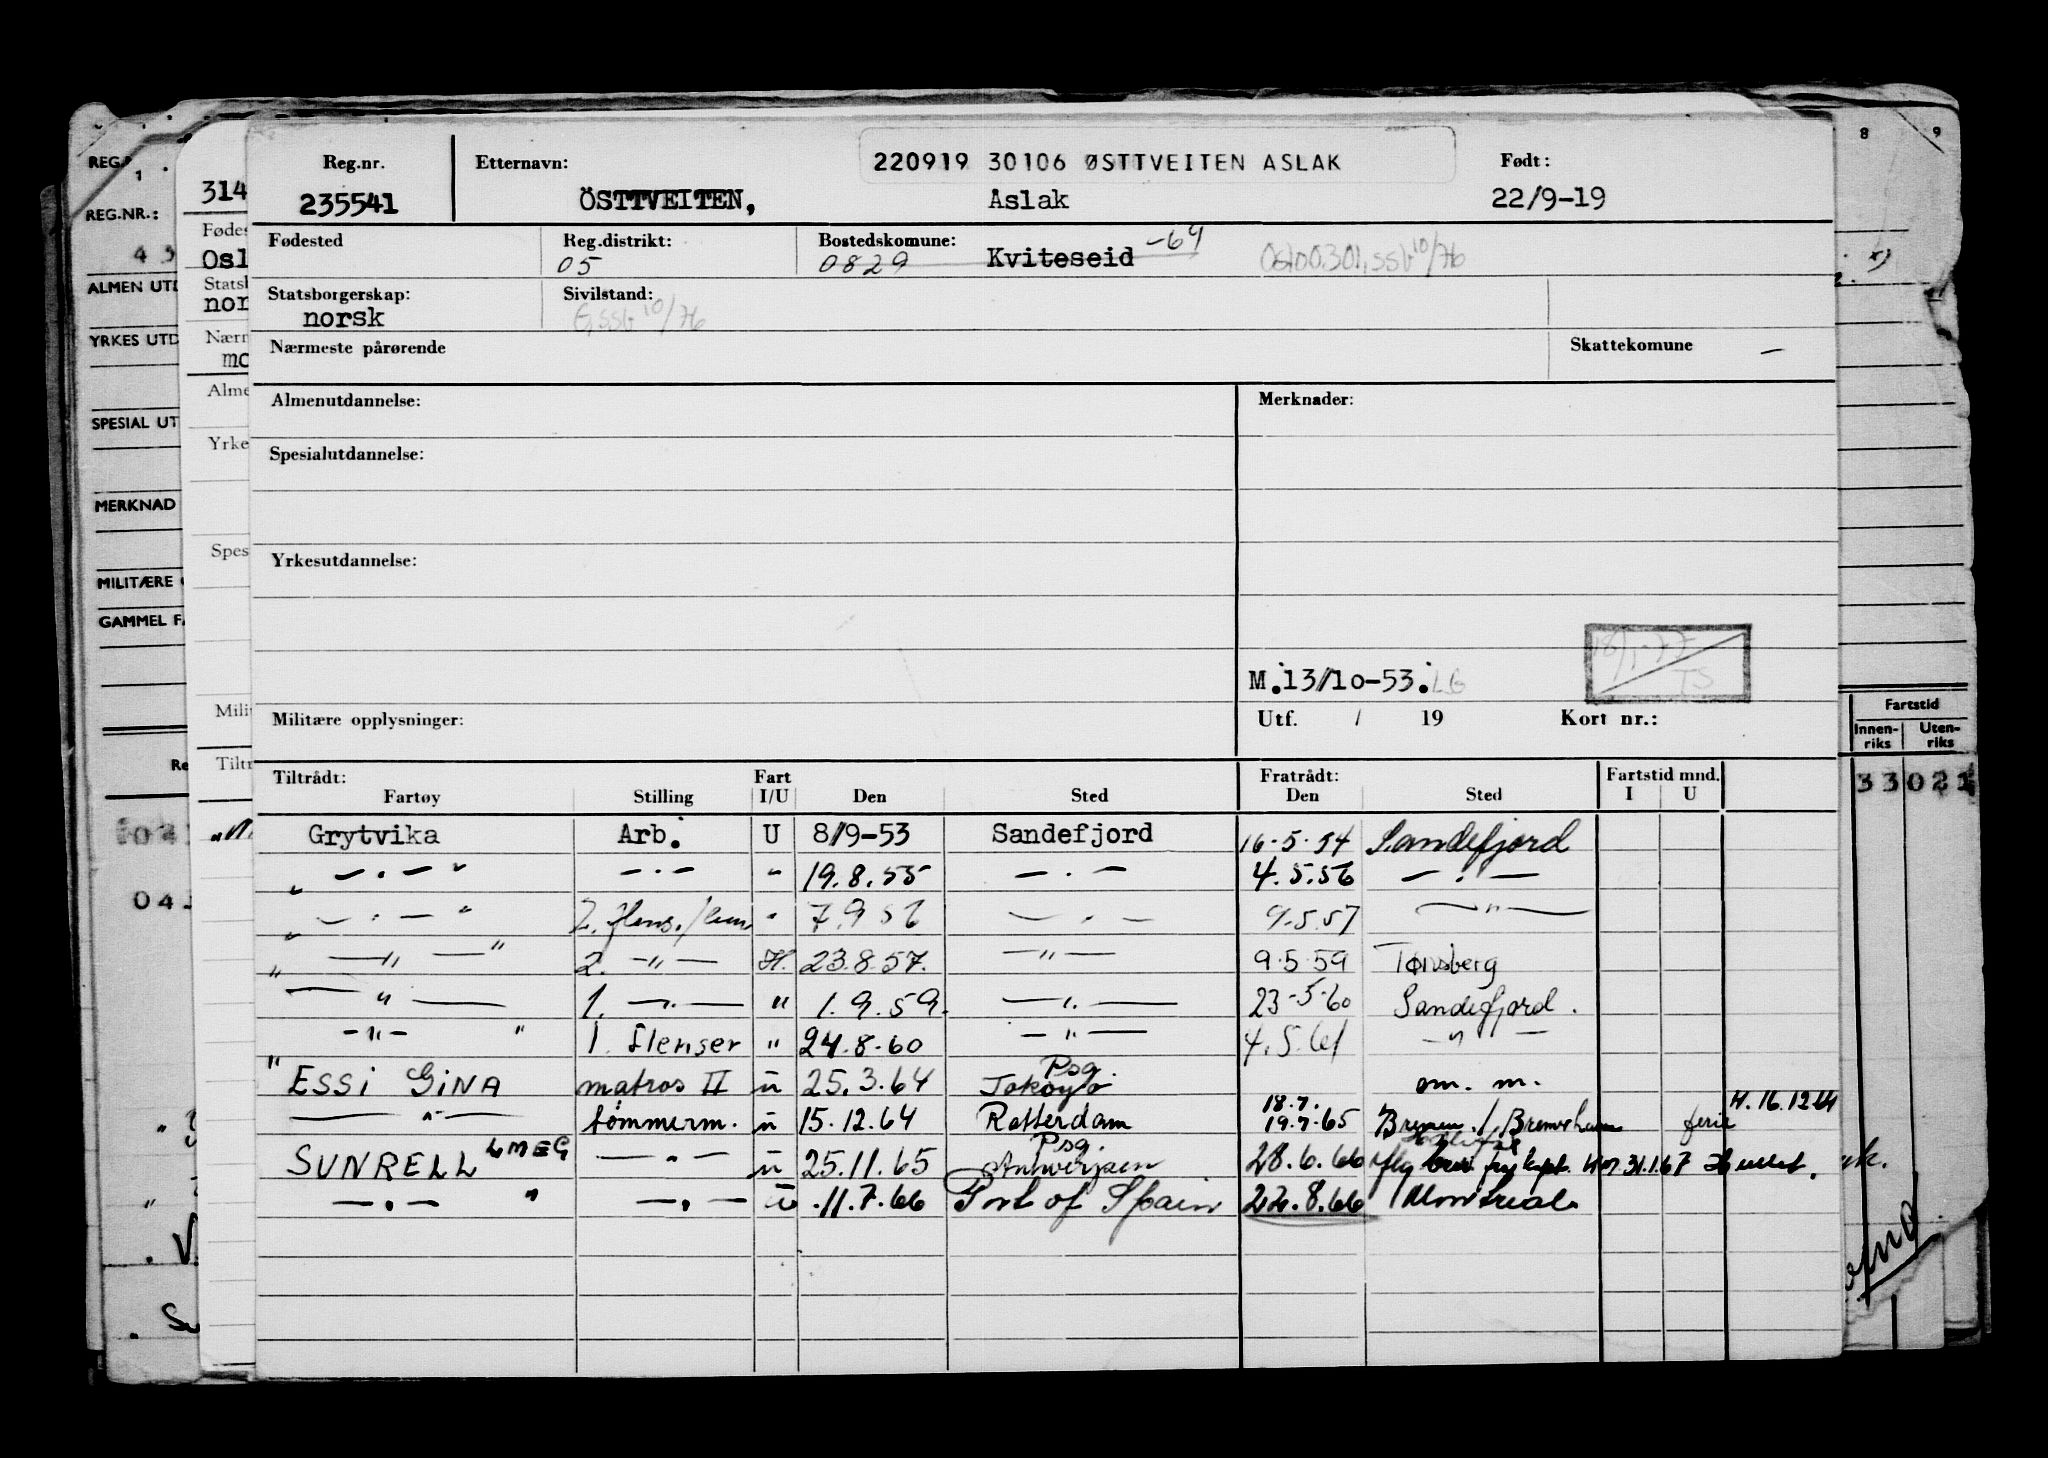 REG.NR.:
ALMEN UTD
YRKES UTD
SPESIAL UT
MERKNAD
MILITÆRE
GAMMEL
314
Osl
nor
mo
8 9
Fartstid
Innenriks Utenriks
33021
Reg.nr. Etternavn: 220919 30106 ØSTTVEITEN ASLAK Født:
235541 ÖSTTVEITEN, Aslak 22/9-19
Fødested Reg.distrikt: Bostedskomune: Kviteseid -64 Oslo 0301, ssb 10/76
05 0829
Statsborgerskap: Sivilstand:
norsk G, ssb 10/76
Nærmeste pårørende Skattekomune —
Almenutdannelse: Merknader:
Spesialutdannelse:
Yrkesutdannelse:
18/1-77 TS
M. 13/10-53. LG
Militære opplysninger: Utf. / 19 Kort nr.:
Tiltrådt: Fart Fratrådt: Fartstid mnd.
Fartøy Stilling I/U Den Sted Den Sted I U
Grytvika Arb. U 8/9-53 Sandefjord 16.5.54 Sandefjord
" — . — " — . — " 19.8.55 — . — 4.5.56 — . —
" — . — " 2. flens. " 7.9.56 — . — 9.5.57 — " —
" — " — " 2. — " — H. 23.8.57. — " — 9.5.59 Tønsberg
— " — 1. — . — " 1.9.59. — . — 23-5-60 Sandefjord.
— " — " 1. flenser " 24.8.60 — " — 4.5.61 — " —
" ESSI GINA matros II u 25.3.64 Psg. om. m.
— " — tømmerm. u 15.12.64 Rotterdam 18.7. 19.7.65 Bremen / Bremerhaven ferie H. 16.12.64
SUNRELL LMEG — . — u 25.11.65 Psg. Antwerpen 28.6.66
— . — " — . — u .11.7.66 Port of Spain 22.8.66 Montreal.